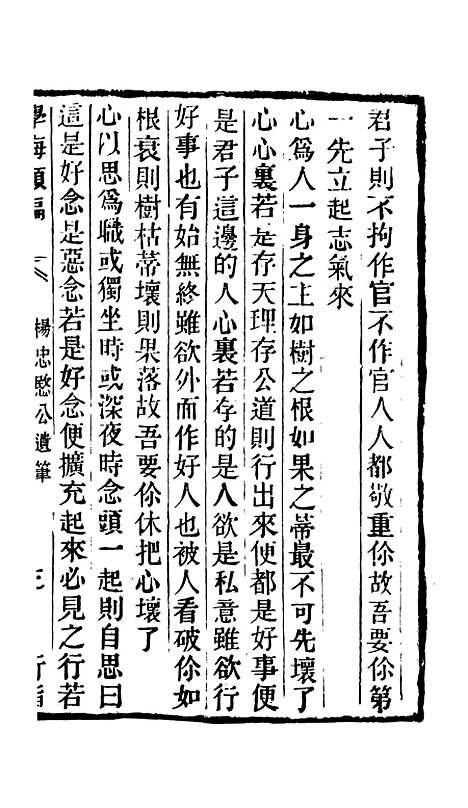 君子則不拘作官不作官人人都敬重你故吾要你第
一先立起志氣來
心爲人一身之主如樹之根如果之蒂最不可先壞了
心心裏若是存天理存公道則行出來便都是好事便
是君子這邊的人心裏若存的是人欲是私意雖欲行
好事也有始無終雖欲外面作好人也被人看破你如
根衰則樹枯蒂壞則果落故吾要你休把心壞了
心以思爲職或獨坐時或深夜時念頭一起則自思曰
這是好念是惡念若是好念便擴充起來必見之行若
學海類編 楊忠愍公遺筆 三 行詣